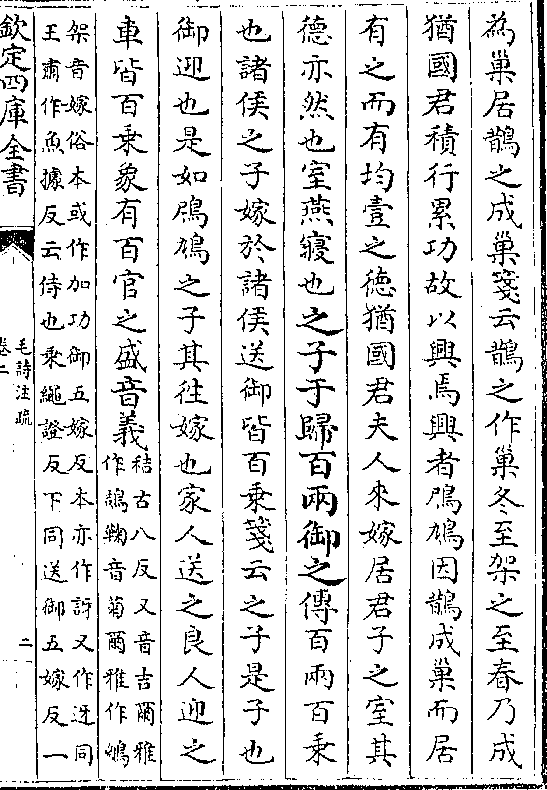 為巢居鵲之成巢箋云鵲之作巢冬至架之至春乃成
猶國君積行累功故以興焉興者鳲鳩因鵲成巢而居
有之而有均壹之德猶國君夫人來嫁居君子之室其
德亦然也室燕寢也之子于歸百兩御之傳百兩百乗
也諸侯之子嫁於諸侯送御皆百乗箋云之子是子也
御迎也是如鳲鳩之子其往嫁也家人送之良人迎之
車皆百乗象有百官之盛音義
秸古八反又音吉爾雅
作鴶鞠音菊爾雅作鵴
架音嫁俗本或作加功御五嫁反本亦作訝又作迓同
王肅作魚據反云侍也乗繩證反下同送御五嫁反一
欽定四庫全書
毛詩注疏
卷二
二